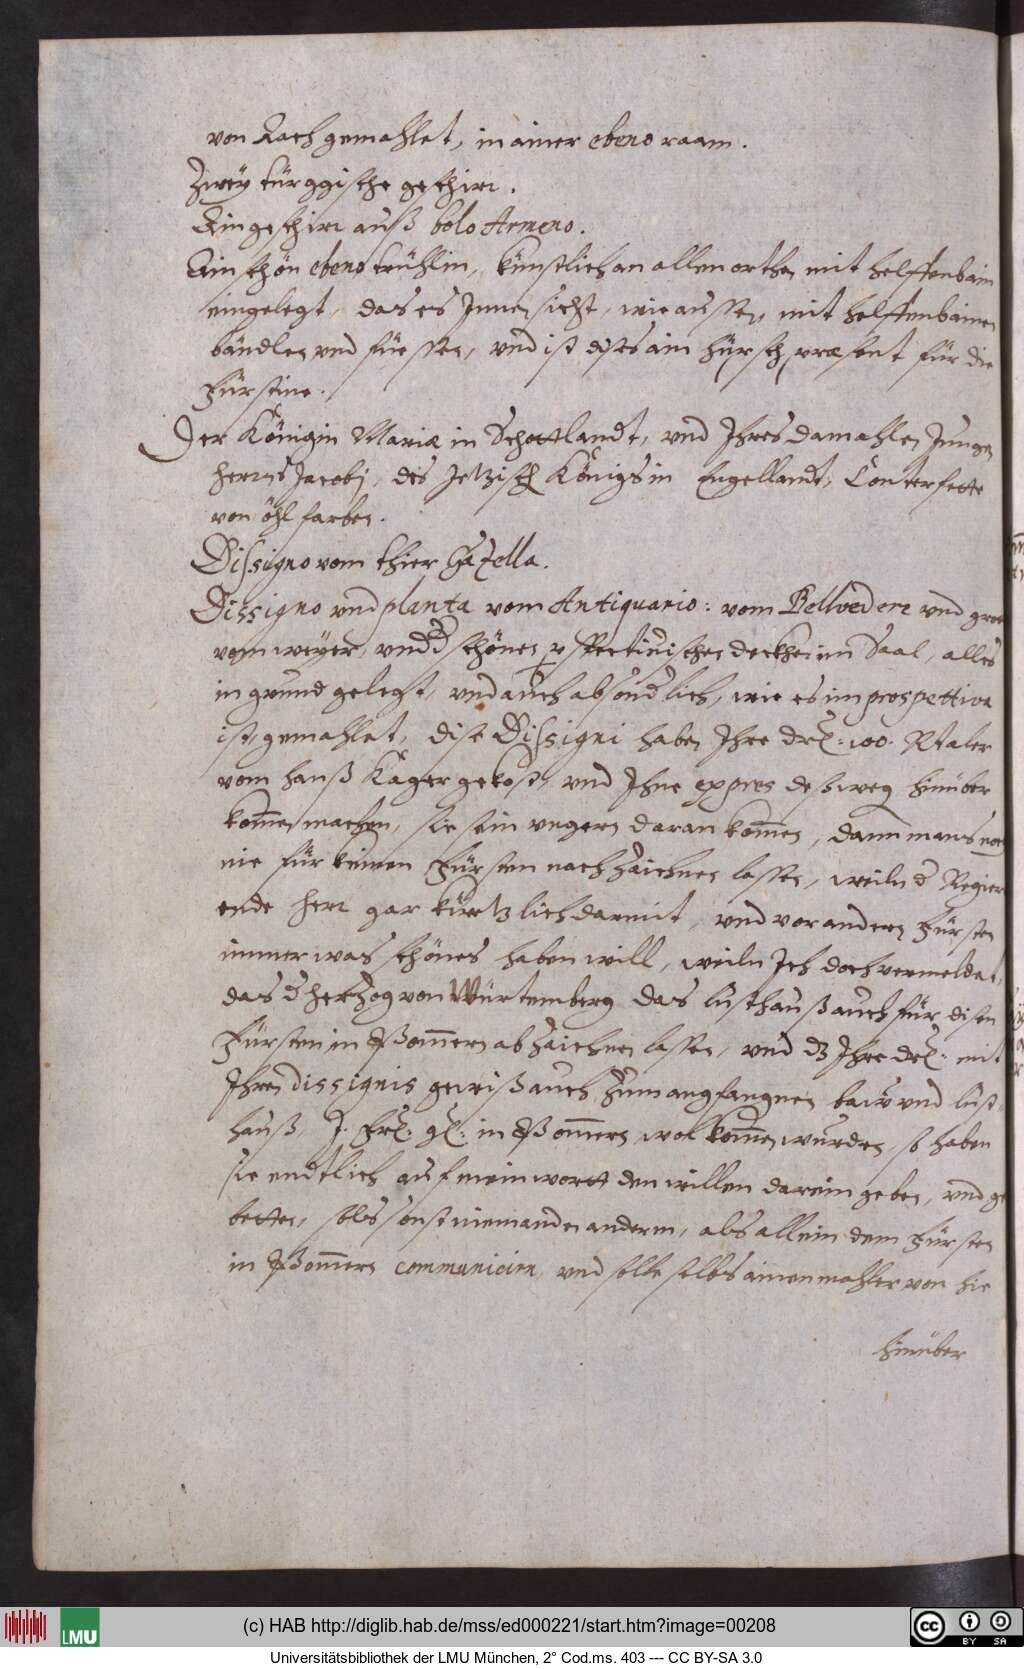 von Aach gemahlet, in ainer ebeno raam.
Zwey türggische geschirr.
Ain geschirr auß bolo Armeno.
Ain schön ebeno trühlin, künstlich an allen orthen mit helffenbain
eingelegt, das es Innen sicht, wie aussen, mit helffenbainen
bändlen vnd füessen, vnd ist dises ain hürsch præsent für die
Fürstine.
Der Königin Mariæ in Schottlandt, vnd Ihres damahlen Jungen
herrns Jacobj, des Jetzisch Königs in Engellandt, Conterfette
von öhl farben.
Dissigno vom thier Gazella.
Dissigno vnd planta vom Antiquario: vom Bellvedere vnd
vom weyer, vnd d schönen perspectivischen deckhe im Saal, alles
in grund gelegt, vnd auch absonderlich, wie es im prospettiva
ist, gemahlet, dise Dissigni haben Ihre drl: 100. Rtaler
vom hanß Kager gekost, vnd Ihne expres deßweg hinüber
kom̄en machen, sie sein vngern daran kom̄en, dann mans noch
nie für keinen Fürsten nach zaichnen lassen, weiln d Regier
ende herr gar kürtzlich darmit, vnd vor andern Fürsten
immer was schönes haben will, weiln Ich doch vermeldet,
das d herzog von Würtemberg das lusthauß auch für disen
Fürsten in Pom̄ern abzaichnen lassen, vnd dz Ihre drl: mit
Ihren dissignis gewiß auch zum angefangnen baw vnd lust-
hauß J. Frl: gl: in Pom̄ern wol kom̄en wurden, so haben
sie endtlich auf mein wortt den willen darein geben, vnd ge
betten, solls sonst niemanden anderm, als allein dem Fürsten
in Pom̄ern communiciern, vnd solle selbs ainen mahler von hie
hinüber
(c) HAB http://diglib.hab.de/mss/ed000221/start.htm?image=00208
LMU
Universitätsbibliothek der LMU München, 2° Cod.ms. 403 --- CC BY-SA 3.0
cc BY SA